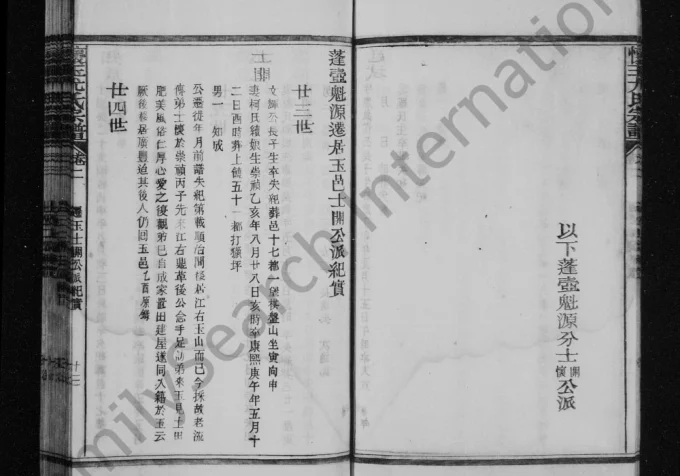 以下蓬壺魁源分士開懷公派
蓬壺魁源遷居玉邑士開公派紀實
廿三世
士開
文輝公長子生卒失紀葬邑十七都一望棋盤山坐寅向申
妻柯氏鏡娘生崇禎乙亥年八月廿八日亥時卒康熙庚午年五月十
二日酉時葬上饒五十一都打猪坪
男一 知成
公遷從年月前譜失紀第載順治間僑居江右玉山而已今採故老流
傳弟士懷於崇禎丙子先來江右鼎革後公念手足訪弟來玉見土田
肥美風俗仁厚心愛之後觀弟已自成家置田建屋遂同入籍於玉云
厥後移居廣豐迨其後人仍回玉邑乙酉原輯
廿四世
卷一
遷玉士開公派紀實
FamilySearch International